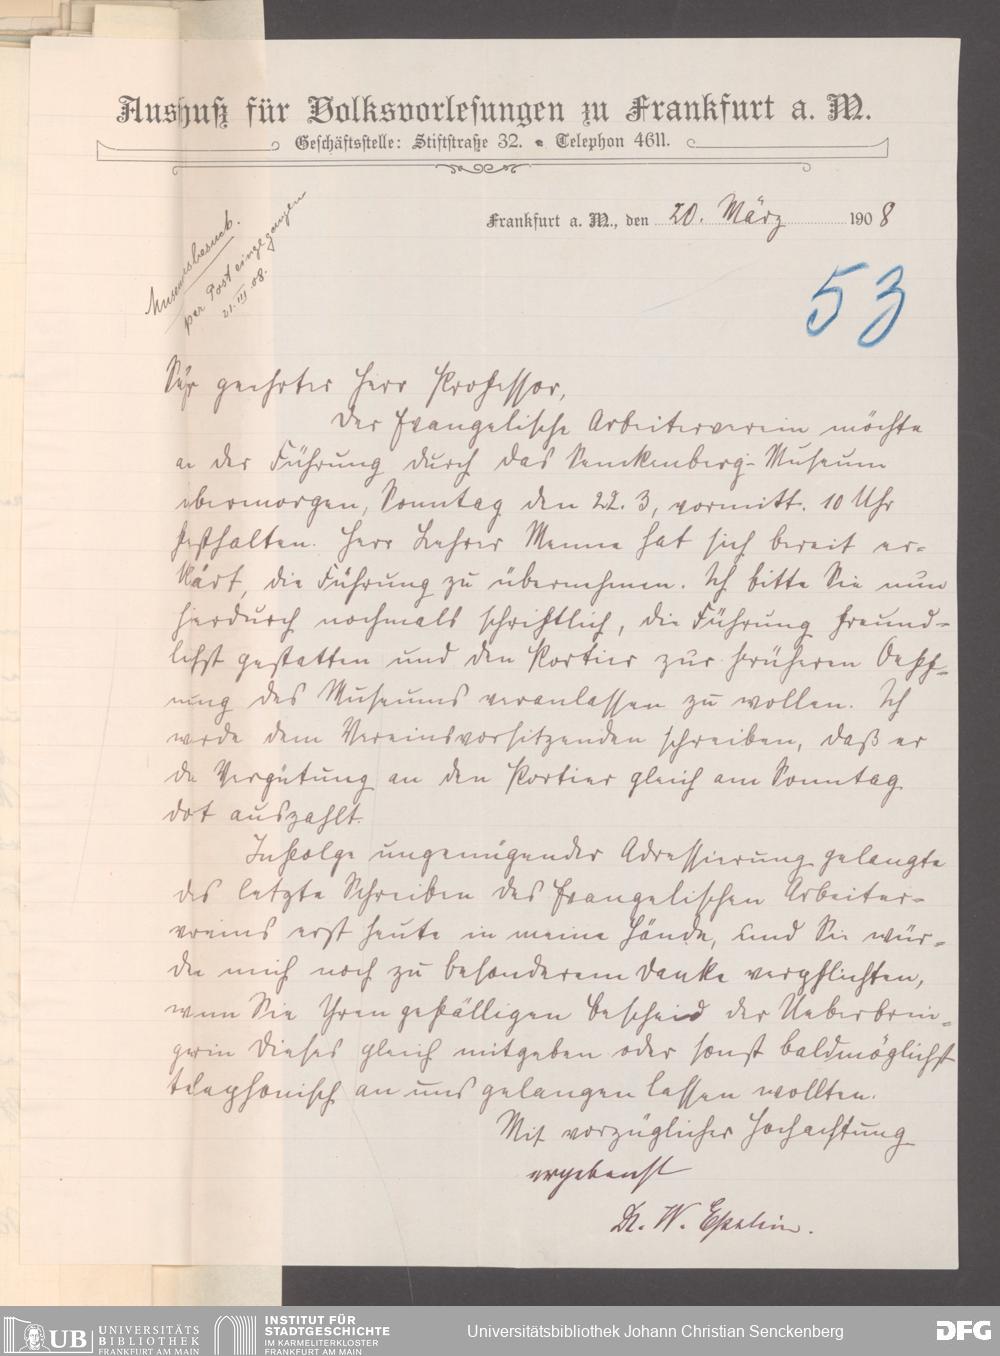 Ausschuß für Volksvorlesungen zu Frankfurt a. M.
Geschäftsstelle: Stiftstraße 32. • Telephon 4611.
Frankfurt a. M., den 20. März 1908
Museumsbesuch.
per Post eingegangen
21.III.08.
53
Sehr geehrter Herr Professor,
der Evangelische Arbeiterverein möchte
an der Führung durch das Senckenberg-Museum
übermorgen, Sonntag den 22. 3, vormitt. 10 Uhr
festhalten. Herr Lehrer Menne hat sich bereit er-
klärt, die Führung zu übernehmen. Ich bitte Sie nun
hierdurch nochmals schriftlich, die Führung freund-
lichst gestatten und den Portier zur früheren Oeff-
nung des Museums veranlassen zu wollen. Ich
werde dem Vereinsvorsitzenden schreiben, daß er
die Vergütung an den Portier gleich am Sonntag
dort auszahlt.
Infolge ungenügender Adressierung gelangte
das letzte Schreiben des Evangelischen Arbeiter-
vereins erst heute in meine Hände, und Sie wür-
den mich noch zu besonderem Danke verpflichten,
wenn Sie Ihren gefälligen Bescheid der Ueberbrin-
gerin dieses gleich mitgeben oder sonst baldmöglichst
telephonisch an uns gelangen lassen wollten.
Mit vorzüglicher Hochachtung
ergebenst
Dr. W. Epstein.
UB UNIVERSITÄTS
BIBLIOTHEK
FRANKFURT AM MAIN
INSTITUT FÜR
STADTGESCHICHTE
IM KARMELITERKLOSTER
FRANKFURT AM MAIN
Universitätsbibliothek Johann Christian Senckenberg
DFG